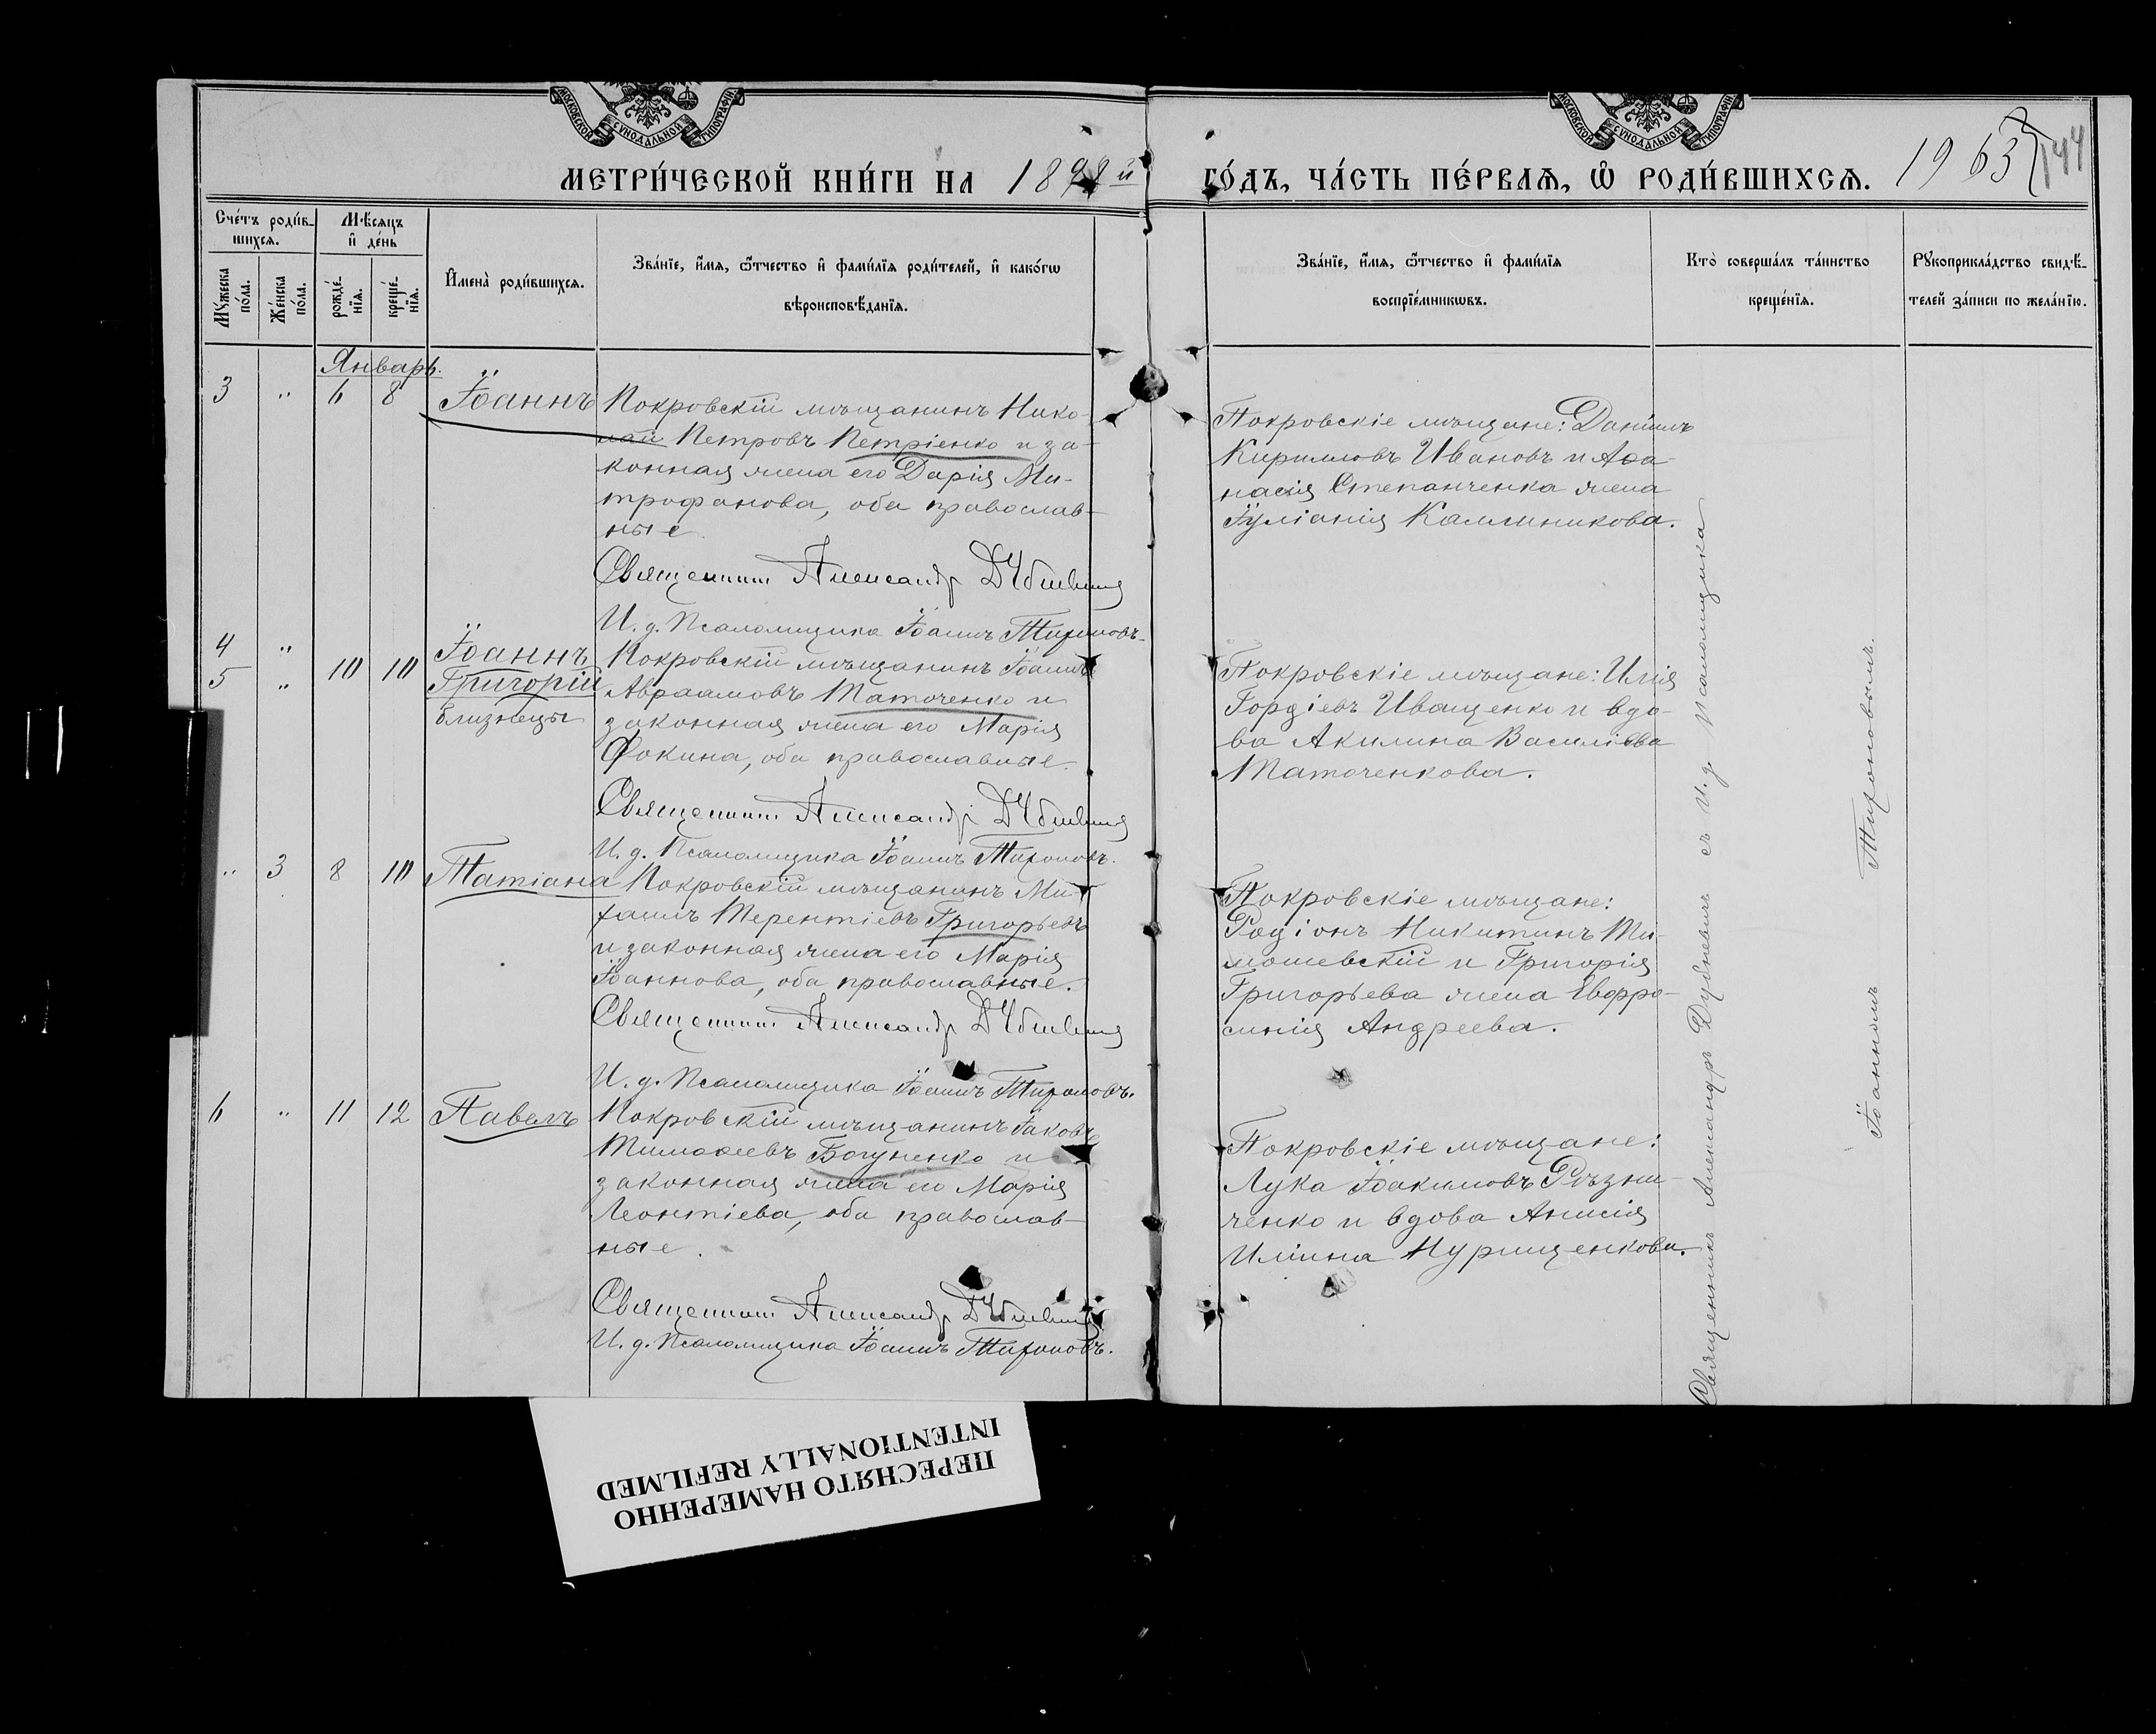 МОСКОВСКОЙ СѴНОДАЛЬНОЙ ТИПОГРАФІИ
МОСКОВСКОЙ СѴНОДАЛЬНОЙ ТИПОГРАФІИ
МЕТРИ́ЧЕСКОЙ КНИ́ГИ НА 1898й ГО́ДЪ, ЧА́СТЬ ПЕ́РВАѦ, Ѽ РОДИ́ВШИХСѦ. 1963 144
Сче́тъ роди́в-
шихсѧ.
Мѣ́сѧцъ
и҆ де́нь
Мꙋ́жеска по́ла.
Же́нска по́ла.
рожде́-нїѧ.
креще́-нїѧ.
И҆мена̀ роди́вшихсѧ.
Зва́нїе, и҆́мѧ, ѻ҆́тчество и҆ фами́лїѧ роди́телей, и҆ како́гѡ
вѣроисповѣ́данїѧ.
Зва́нїе, и҆́мѧ, ѻ҆́тчество и҆ фами́лїѧ
воспрїе́мникѡвъ.
Кто̀ соверша́лъ та́инство
креще́нїѧ.
Рꙋкоприкла́дство свидѣ́-
телей за́писи по жела́нїю.
Январь.
3 " 6 8 Іоаннъ Покровскій мѣщанинъ Нико-
лай Петровъ Петріенко и за-
конная жена его Дарія Ми-
трофанова, оба православ-
ные.
Священникъ Александр Дубневичъ
И. д. Псаломщика Іоаннъ Тихоновъ.
Покровскіе мѣщане: Даніилъ
Кирилловъ Ивановъ и Аѳа-
насія Степанченка жена
Іуліанія Каллиникова.
4 "
5 " 10 10 Іоаннъ
Григорій
близнецы
Покровскій мѣщанинъ Іоаннъ
Авраамовъ Таточенко и
законная жена его Марія
Фокина, оба православные.
Священникъ Александр Дубневичъ
И. д. Псаломщика Іоаннъ Тихоновъ.
Покровскіе мѣщане: Илія
Гордіевъ Иващенко и вдо-
ва Акилина Василіева
Таточенкова.
" 3 8 10 Татіана Покровскій мѣщанинъ Ми-
хаилъ Терентіевъ Григорьевъ
и законная жена его Марія
Іоаннова, оба православные.
Священникъ Александр Дубневичъ
И. д. Псаломщика Іоаннъ Тихоновъ.
Покровскіе мѣщане:
Родіонъ Никитинъ Ти-
мошевскій и Григорія
Григорьева жена Евфро-
синія Андреева.
6 " 11 12 Павелъ Покровскій мѣщанинъ Іаковъ
Тимоѳеевъ Богуненко и
законная жена его Марія
Леонтіева, оба православ-
ные.
Священникъ Александр Дубневичъ
И. д. Псаломщика Іоаннъ Тихоновъ.
Покровскіе мѣщане:
Лука Іоакимовъ Рѣзни-
ченко и вдова Анисія
Иліина Нурищенкова.
Священникъ Александръ Дубневичъ съ И. д. Псаломщика
Іоанномъ Тихоновымъ.
ПЕРЕСНЯТО НАМЕРЕННО
INTENTIONALLY REFILMED